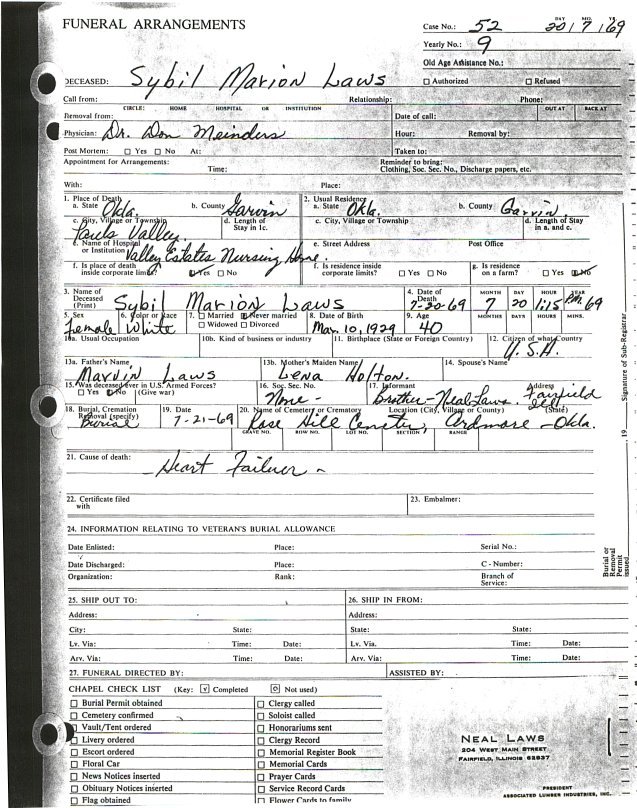 FUNERAL ARRANGEMENTS
Case No.: 52 DAY MO. YR. 20 / 7 / 69
Yearly No.: 9
Old Age Assistance No.:
DECEASED: Sybil Marion Laws ☐ Authorized ☐ Refused
Call from: Relationship: Phone:
CIRCLE: HOME HOSPITAL OR INSTITUTION OUT AT BACK AT
Removal from: Date of call:
Physician: Dr. Don Meinders Hour: Removal by:
Post Mortem: ☐ Yes ☐ No At: Taken to:
Appointment for Arrangements: Reminder to bring:
Time: Clothing, Soc. Sec. No., Discharge papers, etc.
With: Place:
1. Place of Death 2. Usual Residence
a. State Okla. b. County Garvin a. State Okla. b. County Garvin
c. City, Village or Township d. Length of Stay in 1c. c. City, Village or Township d. Length of Stay in a. and c.
Pauls Valley
e. Name of Hospital or Institution Valley Estates Nursing Home. e. Street Address Post Office
f. Is place of death inside corporate limits? ☑ Yes ☐ No f. Is residence inside corporate limits? ☐ Yes ☐ No g. Is residence on a farm? ☐ Yes ☑ No
3. Name of Deceased (Print) Sybil Marion Laws 4. Date of Death 7-20-69 MONTH 7 DAY 20 HOUR 1:15 P.M. YEAR 69
5. Sex Female 6. Color or Race White 7. ☐ Married ☑ Never married ☐ Widowed ☐ Divorced 8. Date of Birth Mar. 10, 1929 9. Age 40 MONTHS DAYS HOURS MINS.
10a. Usual Occupation 10b. Kind of business or industry 11. Birthplace (State or Foreign Country) 12. Citizen of what Country U.S.A.
13a. Father's Name Marvin Laws 13b. Mother's Maiden Name Lena Holton. 14. Spouse's Name
15. Was deceased ever in U.S. Armed Forces? ☐ Yes ☑ No (Give war) 16. Soc. Sec. No. None - 17. Informant brother - Neal Laws. Address Fairfield Ill
18. Burial, Cremation Removal (specify) Burial 19. Date 7-21-69 20. Name of Cemetery or Crematory Location (City, Village or County) (State) Rose Hill Cemetery, Ardmore - Okla.
GRAVE NO. ROW NO. LOT NO. SECTION RANGE
21. Cause of death: Heart Failuer -
22. Certificate filed with 23. Embalmer:
24. INFORMATION RELATING TO VETERAN'S BURIAL ALLOWANCE
Date Enlisted: Place: Serial No.:
Date Discharged: Place: C - Number:
Organization: Rank: Branch of Service:
25. SHIP OUT TO: 26. SHIP IN FROM:
Address: Address:
City: State: State: State:
Lv. Via: Time: Date: Lv. Via. Time: Date:
Arv. Via: Time: Date: Arv. Via: Time: Date:
27. FUNERAL DIRECTED BY: ASSISTED BY:
CHAPEL CHECK LIST (Key: ☑ Completed ☐ Not used)
☐ Burial Permit obtained ☐ Clergy called
☐ Cemetery confirmed ☐ Soloist called
☐ Vault/Tent ordered ☐ Honorariums sent
☐ Livery ordered ☐ Clergy Record
☐ Escort ordered ☐ Memorial Register Book
☐ Floral Car ☐ Memorial Cards
☐ News Notices inserted ☐ Prayer Cards
☐ Obituary Notices inserted ☐ Service Record Cards
☐ Flag obtained ☐ Flower Cards to family
NEAL LAWS
204 WEST MAIN STREET
FAIRFIELD, ILLINOIS 62837
PRESIDENT
ASSOCIATED LUMBER INDUSTRIES, INC.
Burial or Removal Permit issued
, 19
Signature of Sub-Registrar